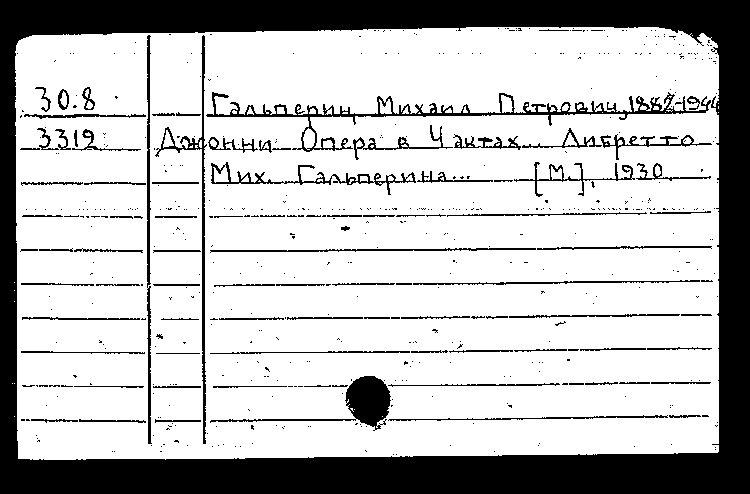 30.8 Гальперин, Михаил Петрович, 1882-1944
3312 Джонни. Опера в 4 актах... Либретто
Мих. Гальперина... [М.], 1930.